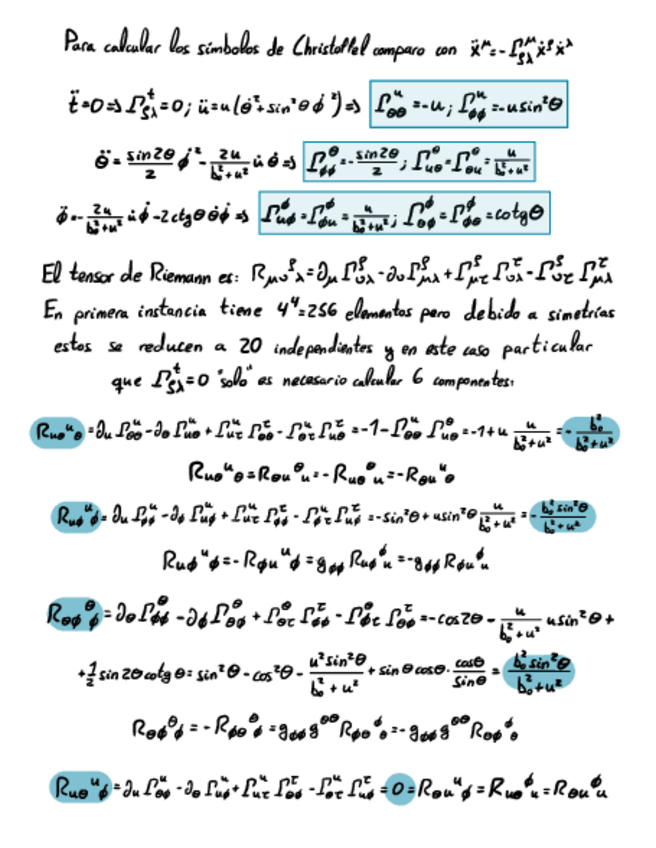 Para calcular los símbolos de Christoffel comparo con ẍ^μ = -Γ^μ_ρλ ẋ^ρ ẋ^λ
ẗ = 0 ⇒ Γ^t_ρλ = 0; ü = u(θ̇² + sin²θ φ̇²) ⇒ Γ^u_θθ = -u; Γ^u_φφ = -u sin²θ
θ̈ = sin2θ/2 φ̇² - 2u/(b₀²+u²) u̇ θ̇ ⇒ Γ^θ_φφ = -sin2θ/2; Γ^θ_uθ = Γ^θ_θu = u/(b₀²+u²)
φ̈ = -2u/(b₀²+u²) u̇ φ̇ - 2ctgθ θ̇ φ̇ ⇒ Γ^φ_uφ = Γ^φ_φu = u/(b₀²+u²); Γ^φ_θφ = Γ^φ_φθ = cotgθ
El tensor de Riemann es: R_μν^ρ_λ = ∂_μ Γ^ρ_νλ - ∂_ν Γ^ρ_μλ + Γ^ρ_μτ Γ^τ_νλ - Γ^ρ_ντ Γ^τ_μλ
En primera instancia tiene 4⁴ = 256 elementos pero debido a simetrías
estos se reducen a 20 independientes y en este caso particular
que Γ^t_ρλ = 0 "solo" es necesario calcular 6 componentes:
R_uθ^u_θ = ∂_u Γ^u_θθ - ∂_θ Γ^u_uθ + Γ^u_uτ Γ^τ_θθ - Γ^u_θτ Γ^τ_uθ = -1 - Γ^u_θθ Γ^θ_uθ = -1 + u u/(b₀²+u²) = -b₀²/(b₀²+u²)
R_uθ^u_θ = R_θu^θ_u = -R_uθ^θ_u = -R_θu^u_θ
R_uφ^u_φ = ∂_u Γ^u_φφ - ∂_φ Γ^u_uφ + Γ^u_uτ Γ^τ_φφ - Γ^u_φτ Γ^τ_uφ = -sin²θ + u sin²θ u/(b₀²+u²) = -b₀² sin²θ/(b₀²+u²)
R_uφ^u_φ = -R_φu^u_φ = g_φφ R_uφ^φ_u = -g_φφ R_φu^φ_u
R_θφ^θ_φ = ∂_θ Γ^θ_φφ - ∂_φ Γ^θ_θφ + Γ^θ_θτ Γ^τ_φφ - Γ^θ_φτ Γ^τ_θφ = -cos2θ - u/(b₀²+u²) u sin²θ +
+ 1/2 sin2θ cotgθ = sin²θ - cos²θ - u² sin²θ/(b₀²+u²) + sinθ cosθ · cosθ/sinθ = b₀² sin²θ/(b₀²+u²)
R_θφ^θ_φ = -R_φθ^θ_φ = g_φφ g^θθ R_φθ^φ_θ = -g_φφ g^θθ R_θφ^φ_θ
R_uθ^u_φ = ∂_u Γ^u_θφ - ∂_θ Γ^u_uφ + Γ^u_uτ Γ^τ_θφ - Γ^u_θτ Γ^τ_uφ = 0 = R_θu^u_φ = R_uθ^φ_u = R_θu^φ_u